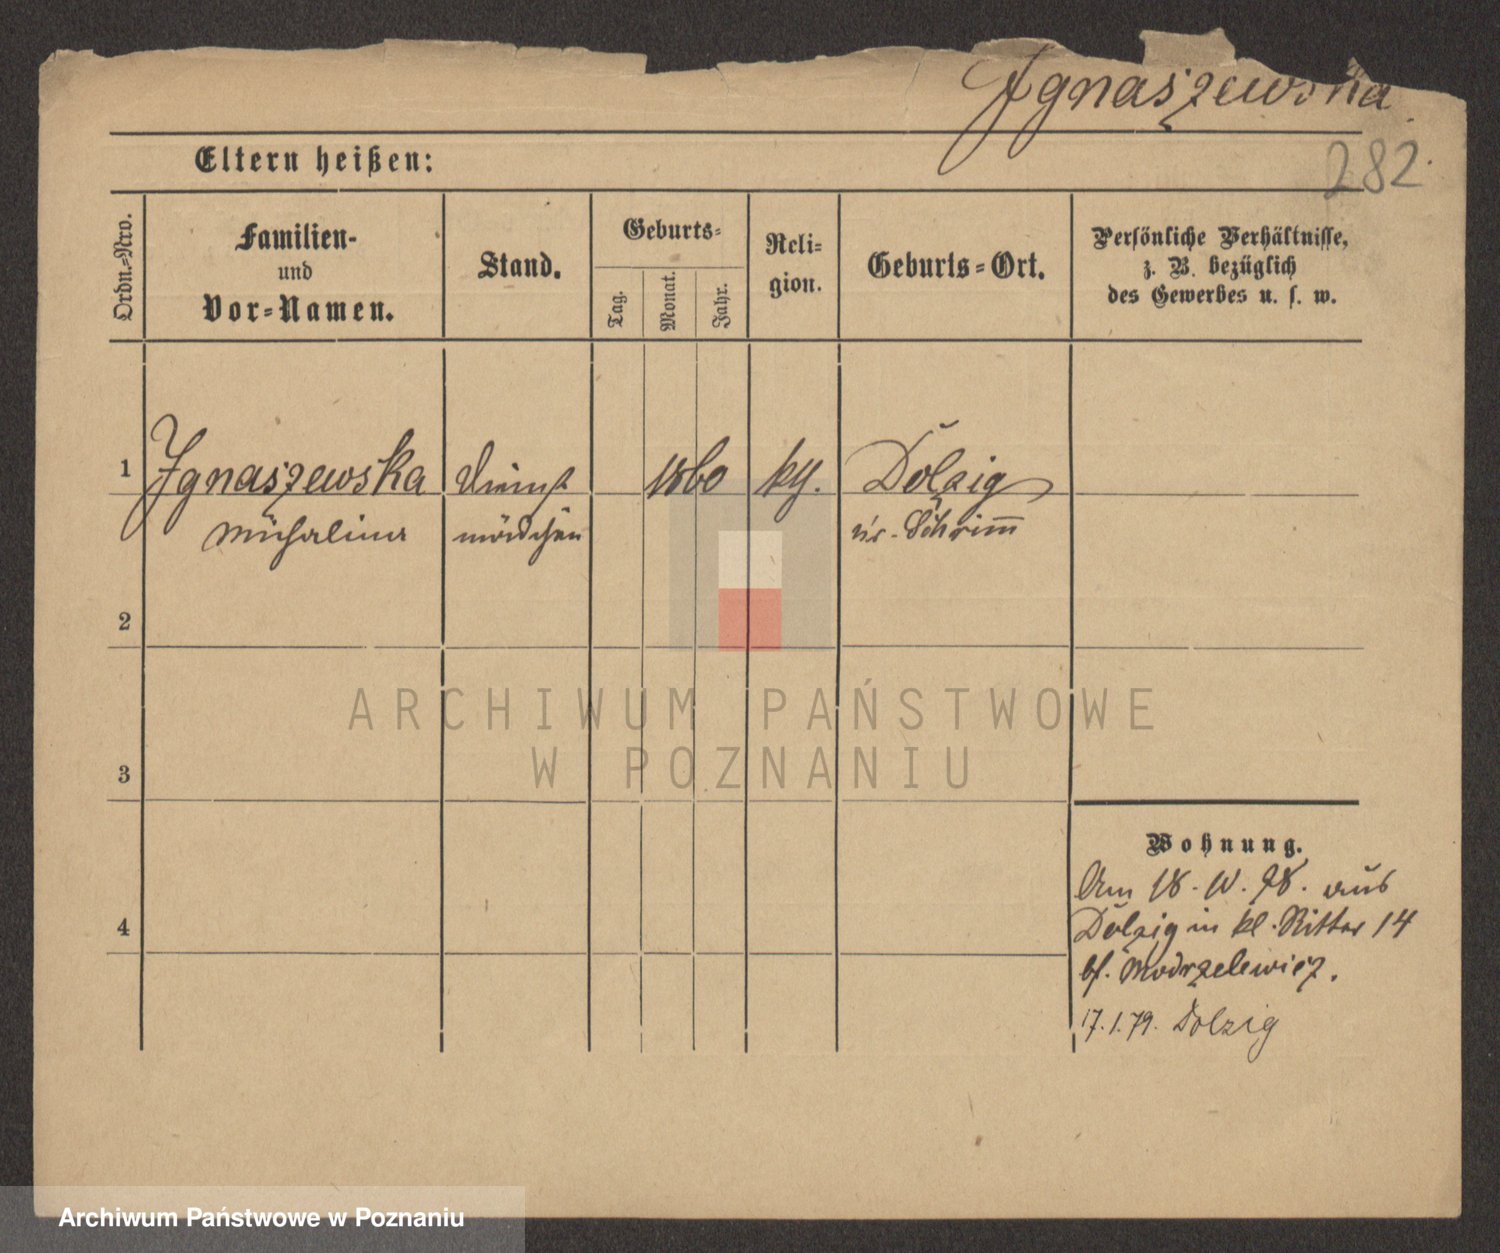 Ignaszewska
282.
Eltern heißen:
Ordn.=Nro.
Familien-
und
Vor=Namen.
Stand.
Geburts=
Tag.
Monat.
Jahr.
Reli-
gion.
Geburts=Ort.
Persönliche Verhältnisse,
z. B. bezüglich
des Gewerbes u. s. w.
1
Ignaszewska
Michalina
Dienst
mädchen
1860
kth.
Dolzig
Kr. Schrimm
2
3
4
ARCHIWUM PAŃSTWOWE
W POZNANIU
Wohnung.
Am 18. 10. 78. aus
Dolzig in kl. Ritter 14
bf. Modrzelewicz.
17.1.79. Dolzig
Archiwum Państwowe w Poznaniu